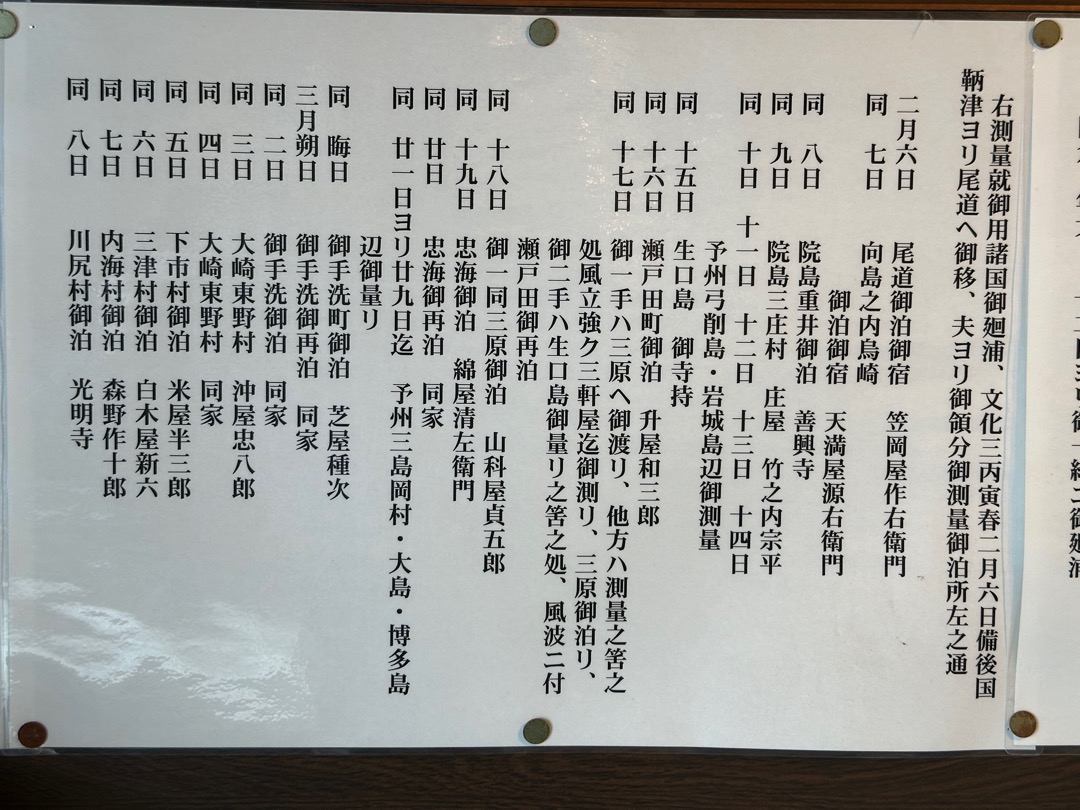 右測量就御用諸国御廻浦、文化三丙寅春二月六日備後国
鞆津ヨリ尾道ヘ御移、夫ヨリ御領分御測量御泊所左之通
二月六日　尾道御泊御宿　笠岡屋作右衛門
同　七日　向島之内烏崎
御泊御宿　天満屋源右衛門
同　八日　院島重井御泊　善興寺
同　九日　院島三庄村　庄屋　竹之内宗平
同　十日　十一日　十二日　十三日　十四日
予州弓削島・岩城島辺御測量
同　十五日　生口島　御寺持
同　十六日　瀬戸田町御泊　升屋和三郎
同　十七日　御一手ハ三原ヘ御渡リ、他方ハ測量之筈之
処風立強ク三軒屋迄御測リ、三原御泊リ、
御二手ハ生口島御量リ之筈之処、風波ニ付
瀬戸田御再泊
同　十八日　御一同三原御泊　山科屋貞五郎
同　十九日　忠海御泊　綿屋清左衛門
同　廿日　忠海御再泊　同家
同　廿一日ヨリ廿九日迄　予州三島岡村・大島・博多島
辺御量リ
同　晦日　御手洗町御泊　芝屋種次
三月朔日　御手洗御再泊　同家
同　二日　御手洗御泊　同家
同　三日　大崎東野村　沖屋忠八郎
同　四日　大崎東野村　同家
同　五日　下市村御泊　米屋半三郎
同　六日　三津村御泊　白木屋新六
同　七日　内海村御泊　森野作十郎
同　八日　川尻村御泊　光明寺